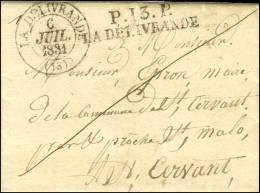 LA DÉLIVRANDE
6
JUIL.
1831
(13)
P.13.P.
LA DÉLIVRANDE
Monsieur
Monsieur Giron, maire
de la commune de St, Servant,
par & proche St, malo,
A St, Servant,